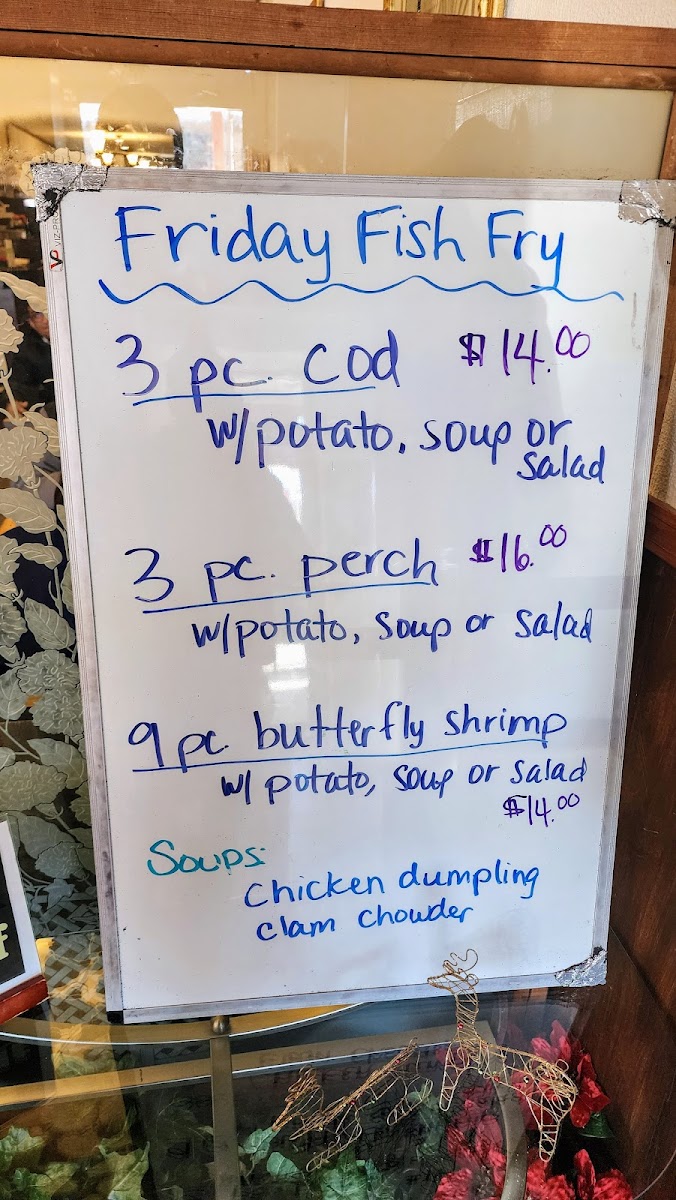 Friday Fish Fry
3 pc. cod $14.00
w/potato, soup or
salad
3 pc. perch $16.00
w/potato, soup or salad
9 pc. butterfly shrimp
w/ potato, soup or salad
$14.00
Soups:
Chicken dumpling
clam chowder